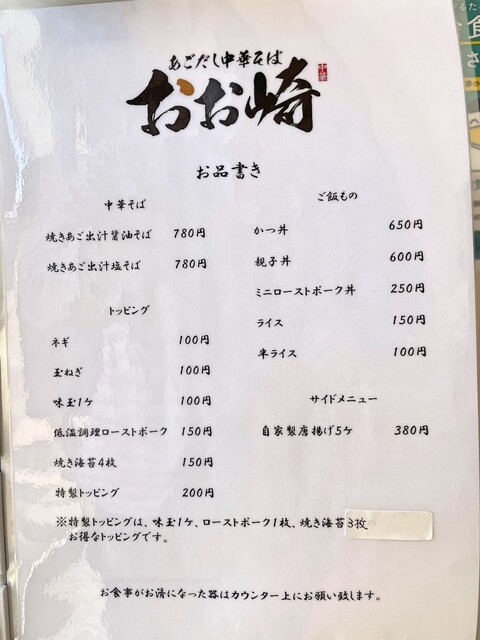 あごだし中華そば
おお崎
中華
お品書き
中華そば
焼きあご出汁醤油そば 780円
焼きあご出汁塩そば 780円
トッピング
ネギ 100円
玉ねぎ 100円
味玉1ケ 100円
低温調理ローストポーク 150円
焼き海苔4枚 150円
特製トッピング 200円
ご飯もの
かつ丼 650円
親子丼 600円
ミニローストポーク丼 250円
ライス 150円
半ライス 100円
サイドメニュー
自家製唐揚げ5ケ 380円
※特製トッピングは、味玉1ケ、ローストポーク1枚、焼き海苔3枚
お得なトッピングです。
お食事がお済になった器はカウンター上にお願い致します。